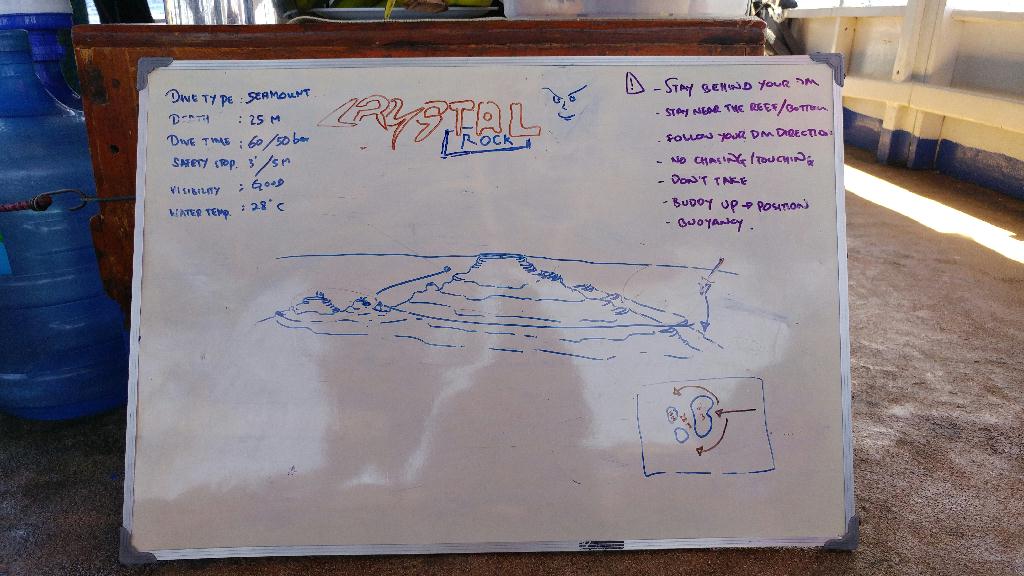 DIVE TYPE : SEAMOUNT
DEPTH : 25 M
DIVE TIME : 60/50 bar
SAFETY STOP. 3'/5M
VISIBILITY : GOOD
WATER TEMP. : 28°C
CRYSTAL
ROCK
- STAY BEHIND YOUR DM
- STAY NEAR THE REEF/BOTTOM
- FOLLOW YOUR DM DIRECTION
- NO CHASING/TOUCHING
- DON'T TAKE
- BUDDY UP → POSITION
- BUOYANCY.